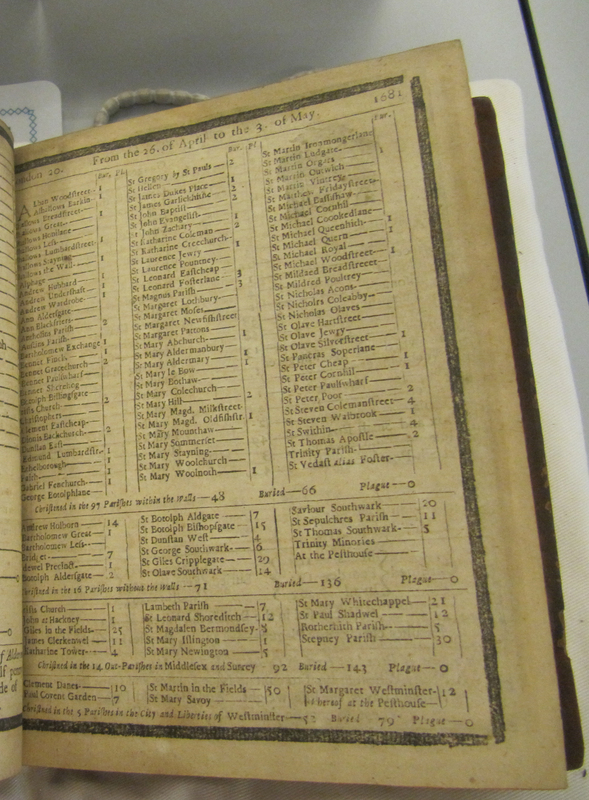 London 20. From the 26. of April to the 3. of May. 1681
Bur. Pl.
Bur. Pl
Bur.
Woodstreet 1
Allhallows Barkin 1
Breadstreet 1
Great
Honilane
Lumbardstreet
Stayning
the Wall
Alphage
Andrew Hubbard 1
Andrew Undershaft 1
Andrew Wardrobe
Ann Aldersgate
Ann Blackfriers 2
Parish
Parish
Bartholomew Exchange 1
Bennet Finck
Bennet Gracechurch 2
Bennet Paulswharf
Bennet Sherehog
Botolph Billingsgate
Christs Church 2
Christophers
Clement Eastcheap
Dionis Backchurch 2
Dunstan East
Edmund Lumbardstr. 1
Ethelborough 1
Faith 1
Gabriel Fenchurch 1
George Botolphlane
St Gregory by St Pauls 2
St Hellen 1
St James Dukes Place 1
St James Garlickhithe 2
St John Baptist
St John Evangelist 1
St John Zachary
St Katharine Coleman 2
St Katharine Creechurch
St Laurence Jewry 1
St Laurence Pountney
St Leonard Eastcheap 3
St Leonard Fosterlane 3
St Magnus Parish
St Margaret Lothbury
St Margaret Moses
St Margaret Newfishstreet
St Margaret Pattons
St Mary Abchurch 1
St Mary Aldermanbury 1
St Mary Aldermary 1
St Mary le Bow
St Mary Bothaw
St Mary Colechurch
St Mary Hill 2
St Mary Magd. Milkstreet
St Mary Magd. Oldfishstr. 1
St Mary Mounthaw
St Mary Summerset
St Mary Stayning
St Mary Woolchurch
St Mary Woolnoth 1
St Martin Iremongerlane
St Martin Ludgate
St Martin Orgars 1
St Martin Outwich
St Martin Vintrey
St Matthew Fridaystreet
St Michael Bassishaw
St Michael Cornhil
St Michael Crookedlane
St Michael Queenhith 1
St Michael Quern
St Michael Royal
St Michael Woodstreet 1
St Mildred Breadstreet
St Mildred Poultrey
St Nicholas Acons
St Nicholas Coleabby
St Nicholas Olaves
St Olave Hartstreet
St Olave Jewry
St Olave Silverstreet 1
St Pancras Soperlane
St Peter Cheap 1
St Peter Cornhil 1
St Peter Paulswharf
St Peter Poor 2
St Steven Colemanstreet 4
St Steven Walbrook 1
St Swithin 4
St Thomas Apostle 2
Trinity Parish
St Vedast alias Foster
Christned in the 97 Parishes within the Walls 48 Buried 66 Plague 0
Andrew Holborn 14
Bartholomew Great 1
Bartholomew Less
Bridget 7
Bridewel Precinct 1
Botolph Aldersgate 2
St Botolph Aldgate 7
St Botolph Bishopsgate 15
St Dunstan West 4
St George Southwark 6
St Giles Cripplegate 29
St Olave Southwark 14
Saviour Southwark 20
St Sepulchres Parish 11
St Thomas Southwark 5
Trinity Minories
At the Pesthouse
Christned in the 16 Parishes without the Walls 71 Buried 136 Plague 0
Christs Church 1
John at Hackney 1
Giles in the Fields 25
James Clerkenwel 11
Katharine Tower 4
Lambeth Parish 7
St Leonard Shoreditch 12
St Magdalen Bermondsey 8
St Mary Islington 1
St Mary Newington 5
St Mary Whitechappel 21
St Paul Shadwel 12
Rotherhith Parish 5
Stepney Parish 30
Christned in the 14 Out-Parishes in Middlesex and Surrey 92 Buried 143 Plague 0
Clement Danes 10
Paul Covent Garden 7
St Martin in the Fields 50
St Mary Savoy
St Margaret Westminster 12
whereof at the Pesthouse
Christned in the 5 Parishes in the City and Liberties of Westminster 52 Buried 79 Plague 0